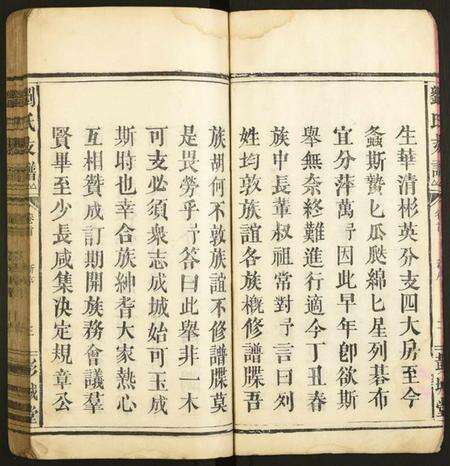 劉氏支譜
卷首
彭城堂
生華清彬英分支四大房至今
螽斯蟄匕瓜瓞綿匕星列碁布
宜分萍萬予因此早年卽欲斯
舉無奈終難進行適今丁丑春
族中長輩叔祖常對予言曰刘
姓均敦族誼各族槪修譜牒吾
族胡何不敦族誼不修譜牒莫
是畏勞乎予答曰此舉非一木
可支必須衆志成城始可玉成
斯時也幸合族紳耆大家熱心
互相贊成訂期開族務會議羣
賢畢至少長咸集決定規章公
劉氏支譜
卷首
三
彭城堂